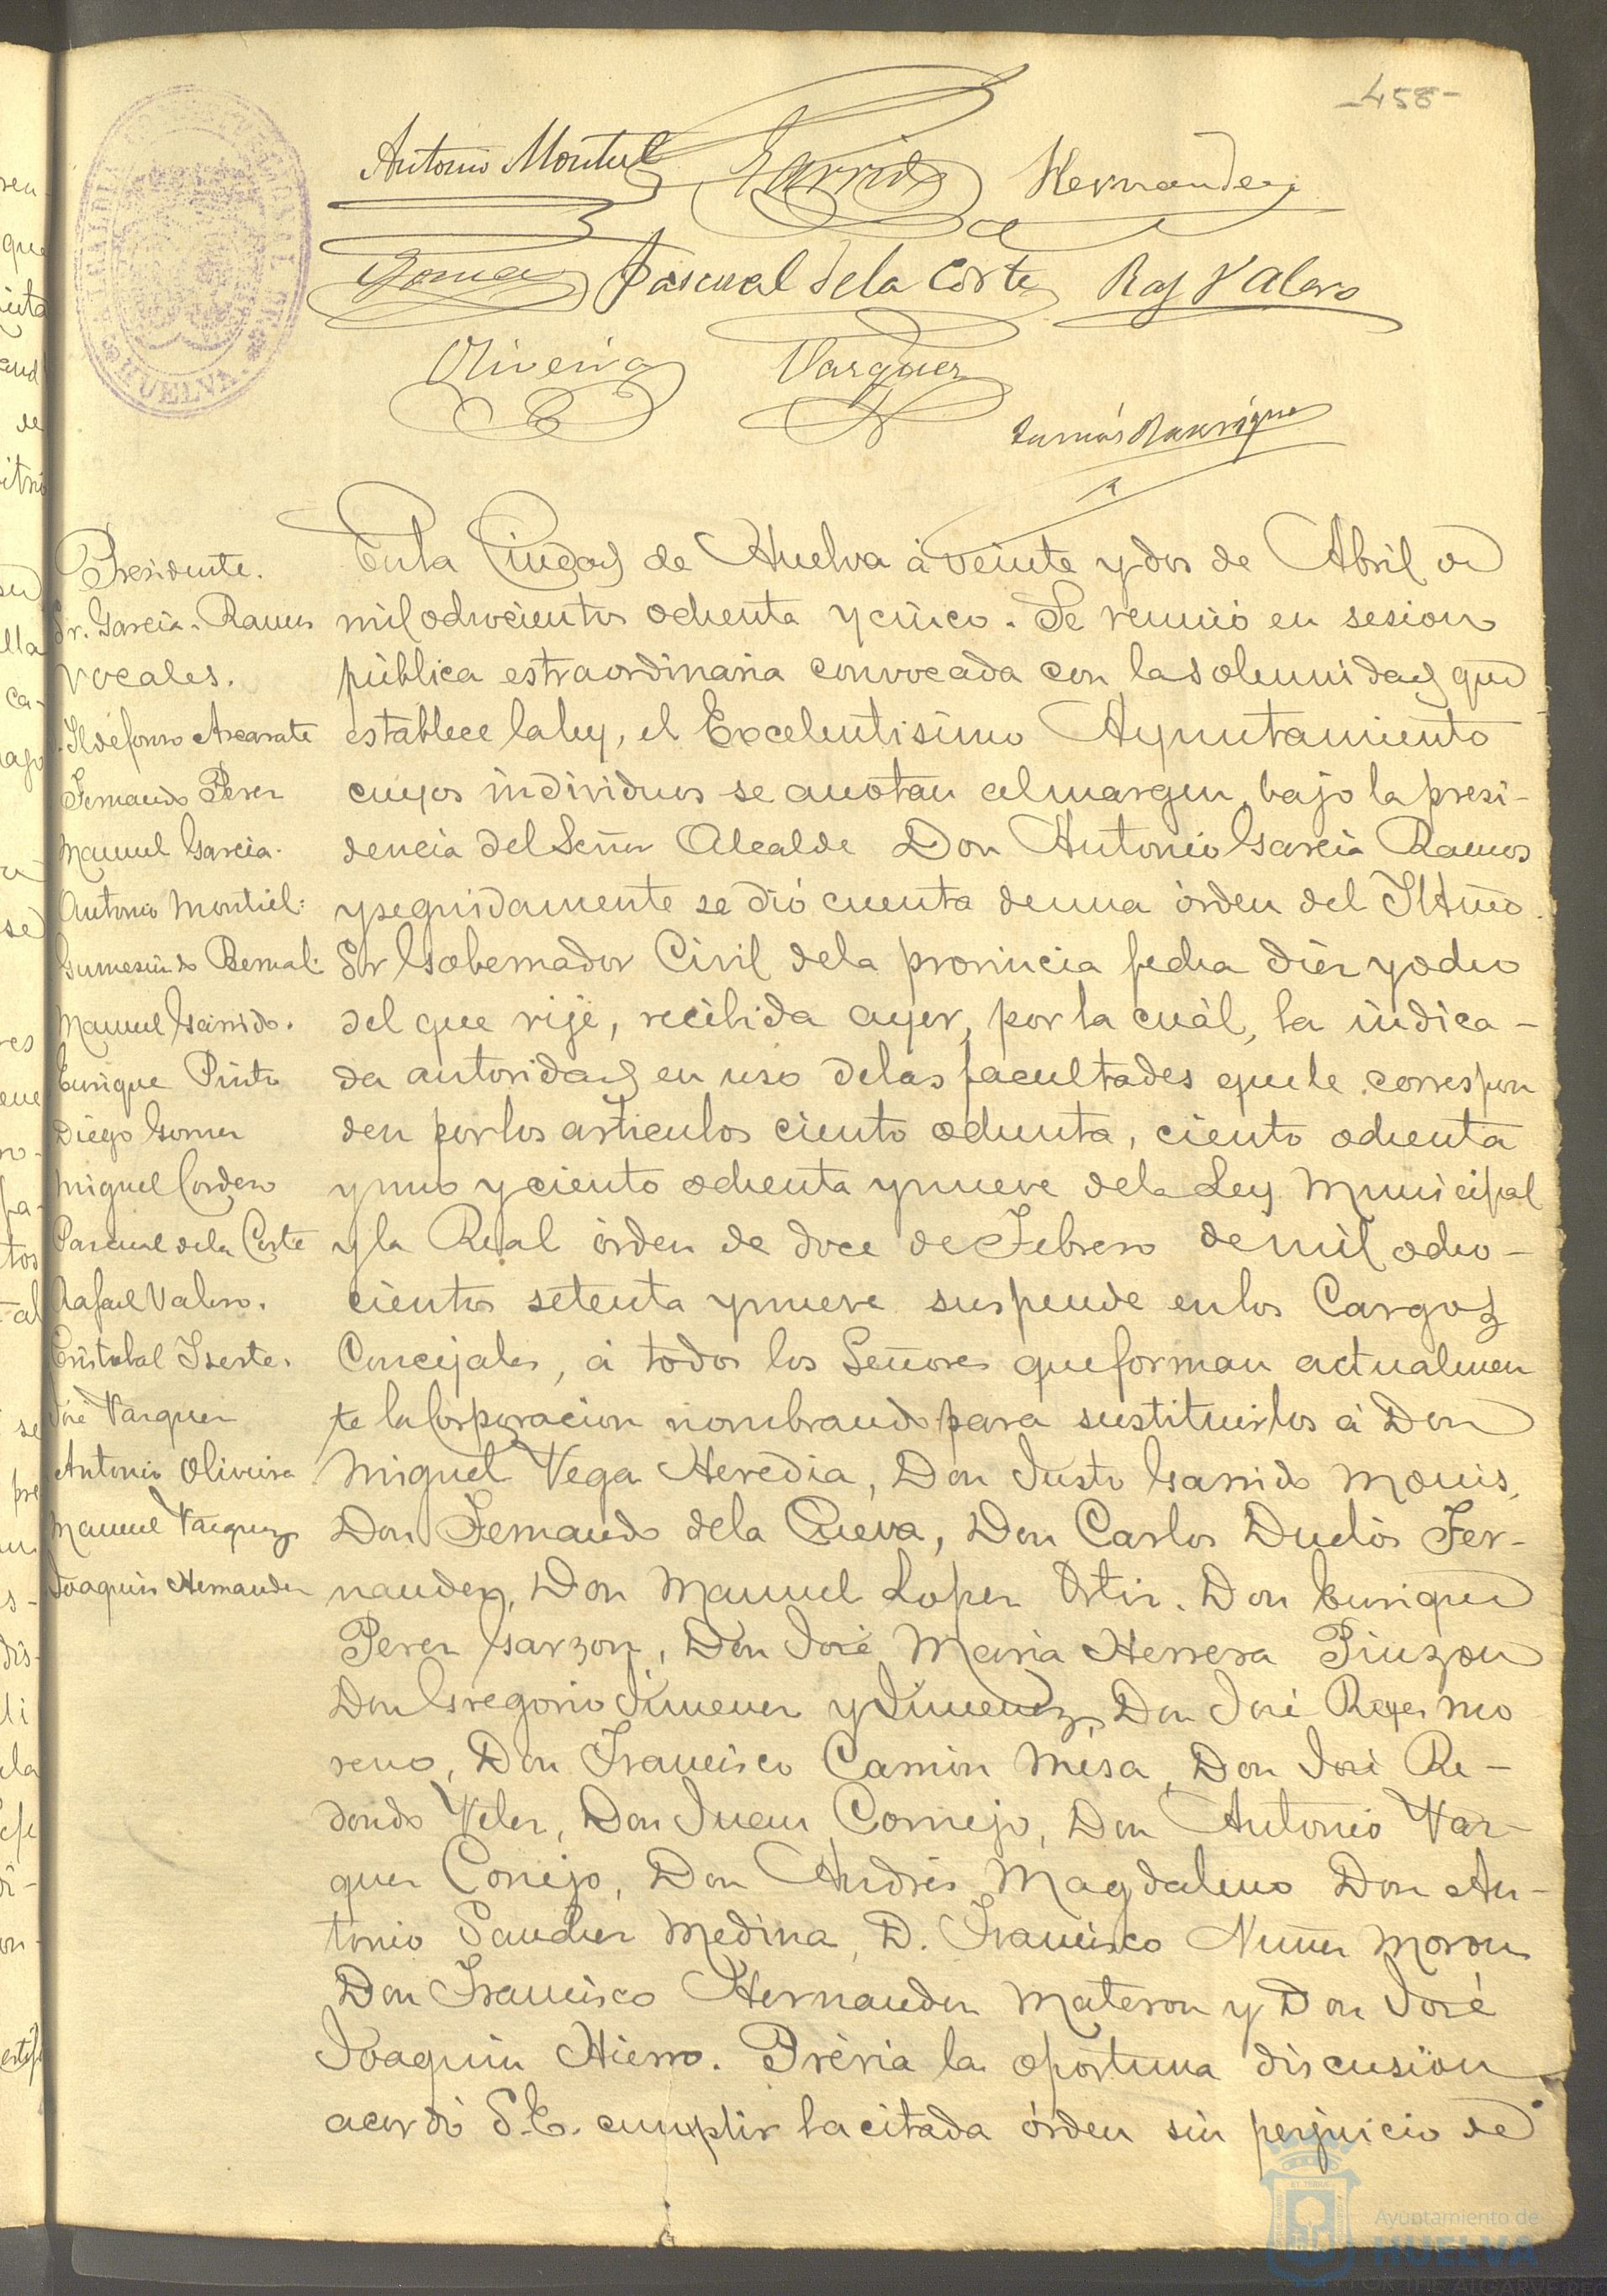 -458-
Antonio Montiel Garrido Hernandez
Gomez Pascual de la Corte Raf Valero
Oliveira Vazquez
HUELVA
Presidente.
Sr. Garcia-Ramos
Vocales.
Ildefonso Azcarate
Fernando Perez
Manuel Garcia.
Antonio Montiel.
Gumesindo Bernal.
Manuel Garrido.
Enrique Pinto
Diego Gomez
Miguel Cordero
Pascual de la Corte
Rafael Valero.
Cristobal Iserte.
José Vazquez
Antonio Oliveira
Manuel Vazquez
Joaquin Hernandez
En la Ciudad de Huelva á veinte y dos de Abril de
mil ochocientos ochenta y cinco. Se reunió en sesion
pública estraordinaria convocada con la solemnidad que
establece la ley, el Excelentisimo Ayuntamiento
cuyos individuos se anotan al margen, bajo la presi-
dencia del Señor Alcalde Don Antonio Garcia Ramos
y seguidamente se dió cuenta de una órden del Iltmo.
Sr Gobernador Civil de la provincia fecha diez y ocho
del que rije, recibida ayer, por la cuál, la indica-
da autoridad en uso de las facultades que le correspon
den por los articulos ciento ochenta, ciento ochenta
y uno y ciento ochenta y nueve de la Ley Municipal
y la Real órden de doce de Febrero de mil ocho-
cientos setenta y nueve suspende en los Cargos
Concejales, á todos los Señores que forman actualmen
te la Corporacion nombrando para sustituirlos á Don
Miguel Vega Heredia, Don Justo Garrido Mouis,
Don Fernando de la Cueva, Don Carlos Duclós Fer-
nandez, Don Manuel Lopez Ortiz. Don Enrique
Perez Garzon, Don José Maria Herrera Pinzon
Don Gregorio Jimenez y Jimenez, Don José Reyes Mo
reno, Don Francisco Camin Mesa, Don José Re-
dondo Velez, Don Juan Cornejo, Don Antonio Vaz-
quez Conejo, Don Andrés Magdaleno Don An-
tonio Sanchez Medina, D. Francisco Nuñez Moron
Don Francisco Hernandez Materon y Don José
Joaquin Hierro. Prévia la oportuna discusion
acordó S.E. cumplir la citada órden sin perjuicio de
Ayuntamiento de
HUELVA